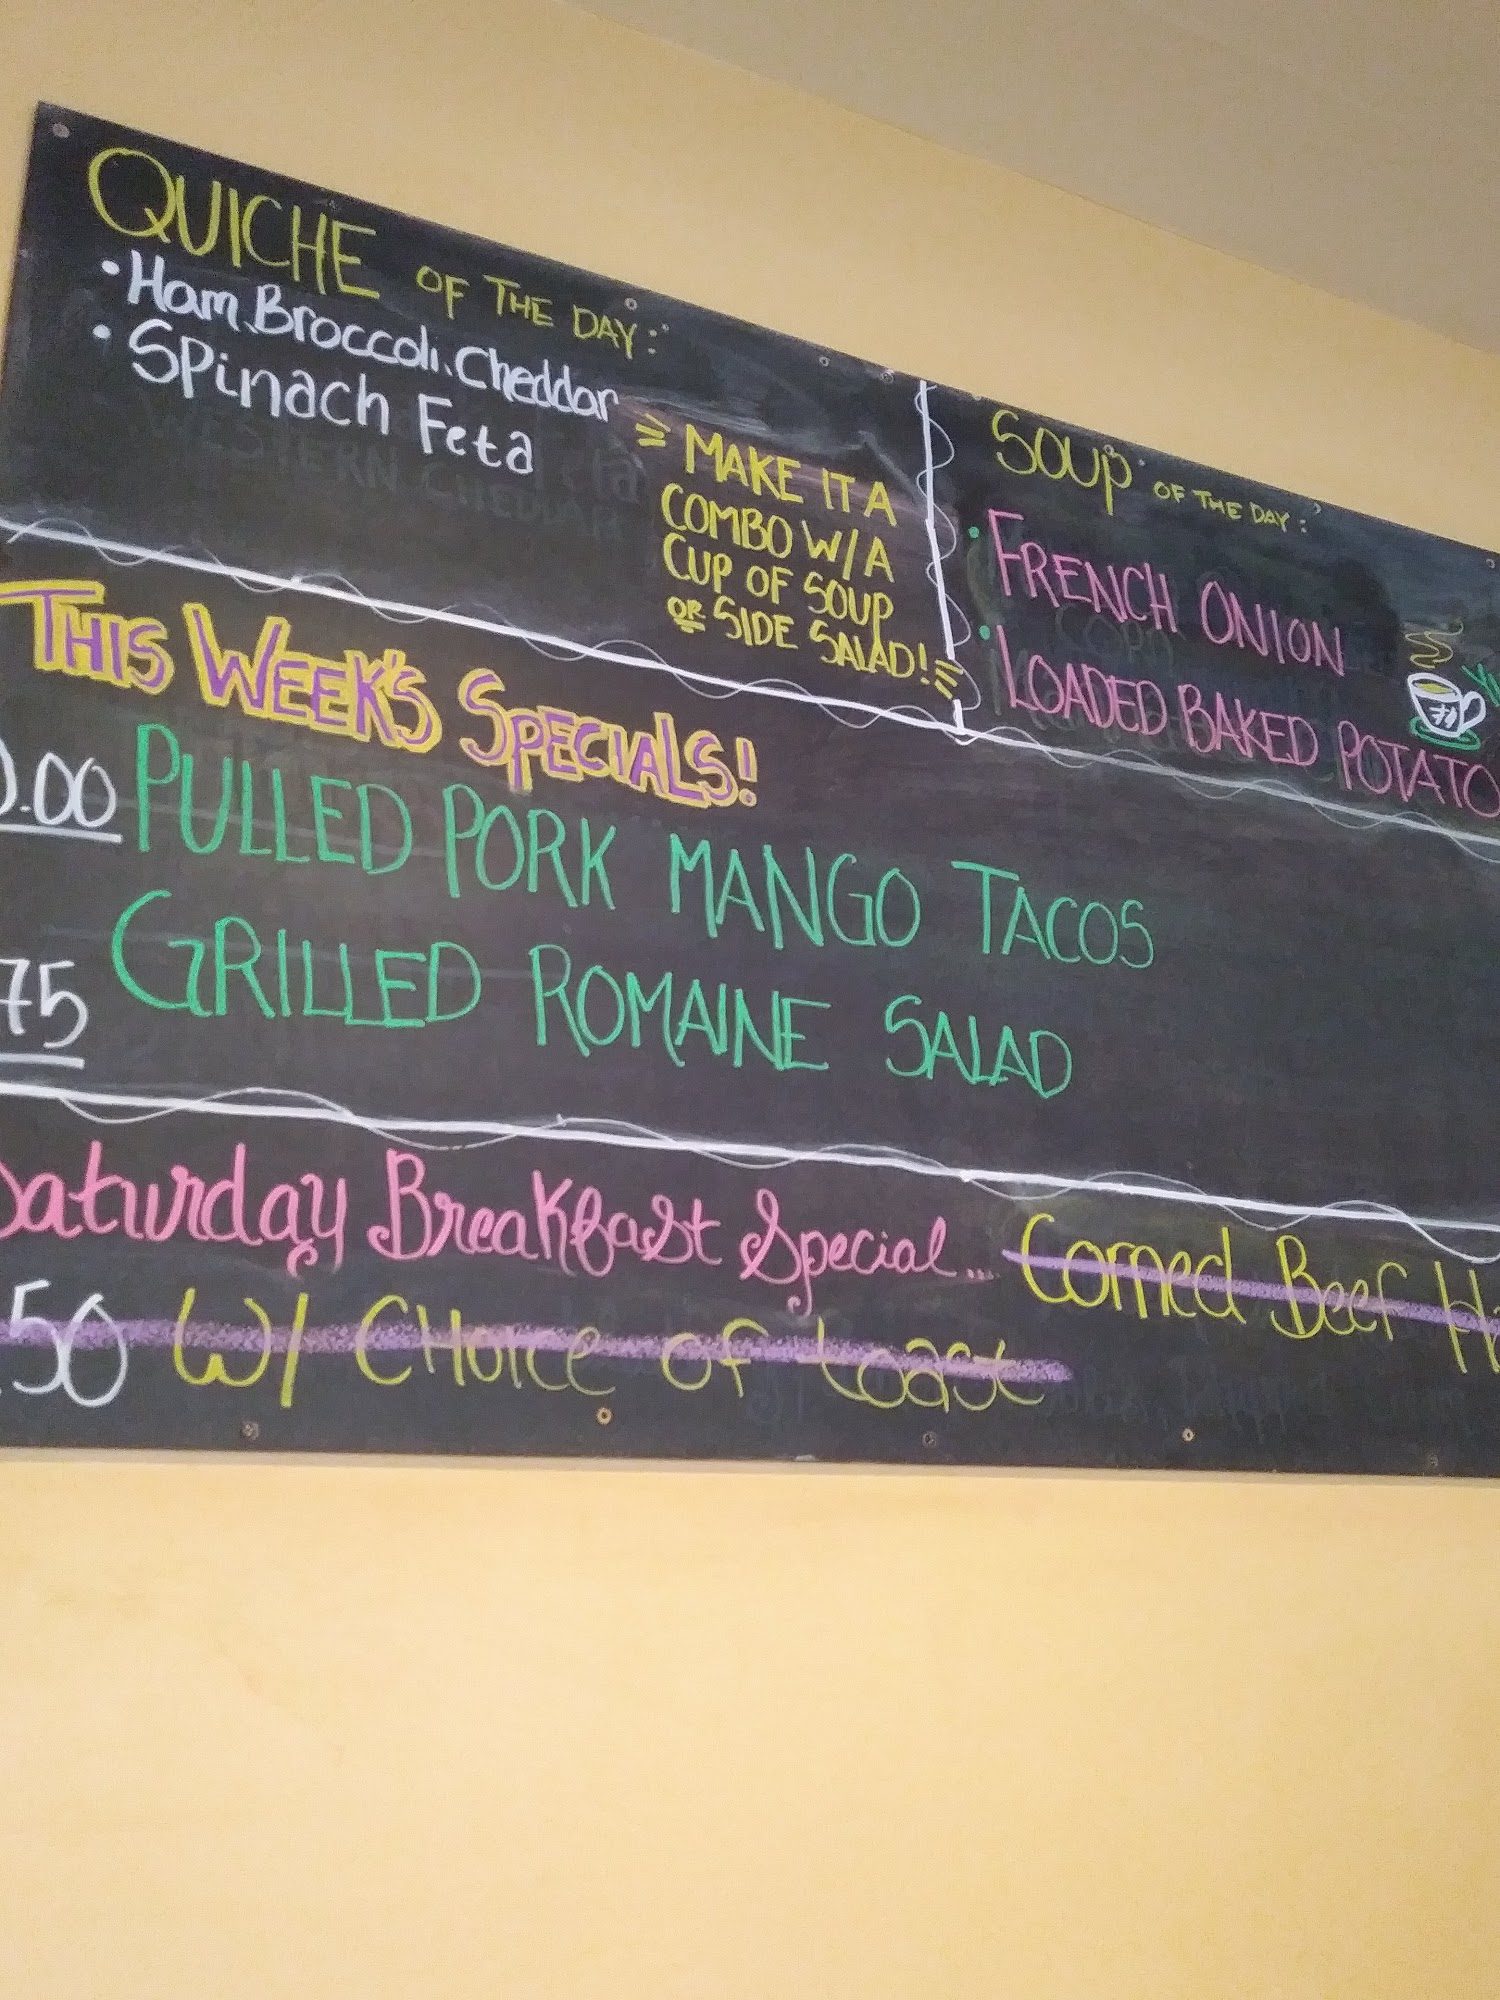 QUICHE OF THE DAY:
• Ham, Broccoli, Cheddar
• Spinach Feta
MAKE IT A
COMBO W/ A
CUP OF SOUP
OR SIDE SALAD!
SOUP OF THE DAY:
• FRENCH ONION
• LOADED BAKED POTATO
THIS WEEK'S SPECIALS!
0.00 PULLED PORK MANGO TACOS
75 GRILLED ROMAINE SALAD
Saturday Breakfast Special... Corned Beef Ha
.50 W/ CHOICE OF toast